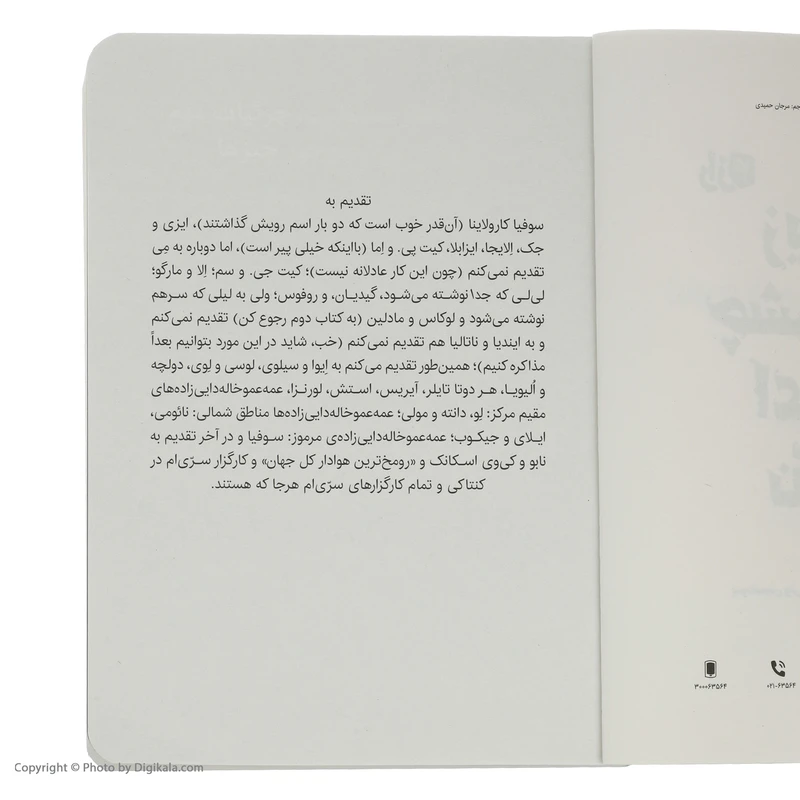 تقدیم به
سوفیا کارولاینا (آن‌قدر خوب است که دو بار اسم رویش گذاشتند)، ایزی و
جک، اِلایجا، ایزابلا، کیت پی. و اِما (بااینکه خیلی پیر است)، اما دوباره به مِی
تقدیم نمی‌کنم (چون این کار عادلانه نیست)؛ کیت جی. و سم؛ اِلا و مارگو؛
لی‌لی که جدا نوشته می‌شود، گیدیان، و روفوس؛ ولی به لیلی که سرهم
نوشته می‌شود و لوکاس و مادلین (به کتاب دوم رجوع کن) تقدیم نمی‌کنم
و به ایندیا و ناتالیا هم تقدیم نمی‌کنم (خب، شاید در این مورد بتوانیم بعداً
مذاکره کنیم)؛ همین‌طور تقدیم می‌کنم به اِیوا و سیلوی، لوسی و لِوی، دولچه
و اُلیویا، هر دوتا تایلر، آیریس، استش، لورنزا، عمه‌عموخاله‌دایی‌زاده‌های
مقیم مرکز: لِو، دانته و مولی؛ عمه‌عموخاله‌دایی‌زاده‌ها مناطق شمالی: نائومی،
ایلای و جیکوب؛ عمه‌عموخاله‌دایی‌زاده‌ی مرموز: سوفیا و در آخر تقدیم به
نابو و کی‌وی اسکانک و «رومخ‌ترین هوادار کل جهان» و کارگزار سرّی‌ام در
کنتاکی و تمام کارگزارهای سرّی‌ام هرجا که هستند.
جم: مرجان حمیدی
۳۰۰۰۶۳۵۶۴
۰۲۱-۶۳۵۶۴
Copyright © Photo by Digikala.com